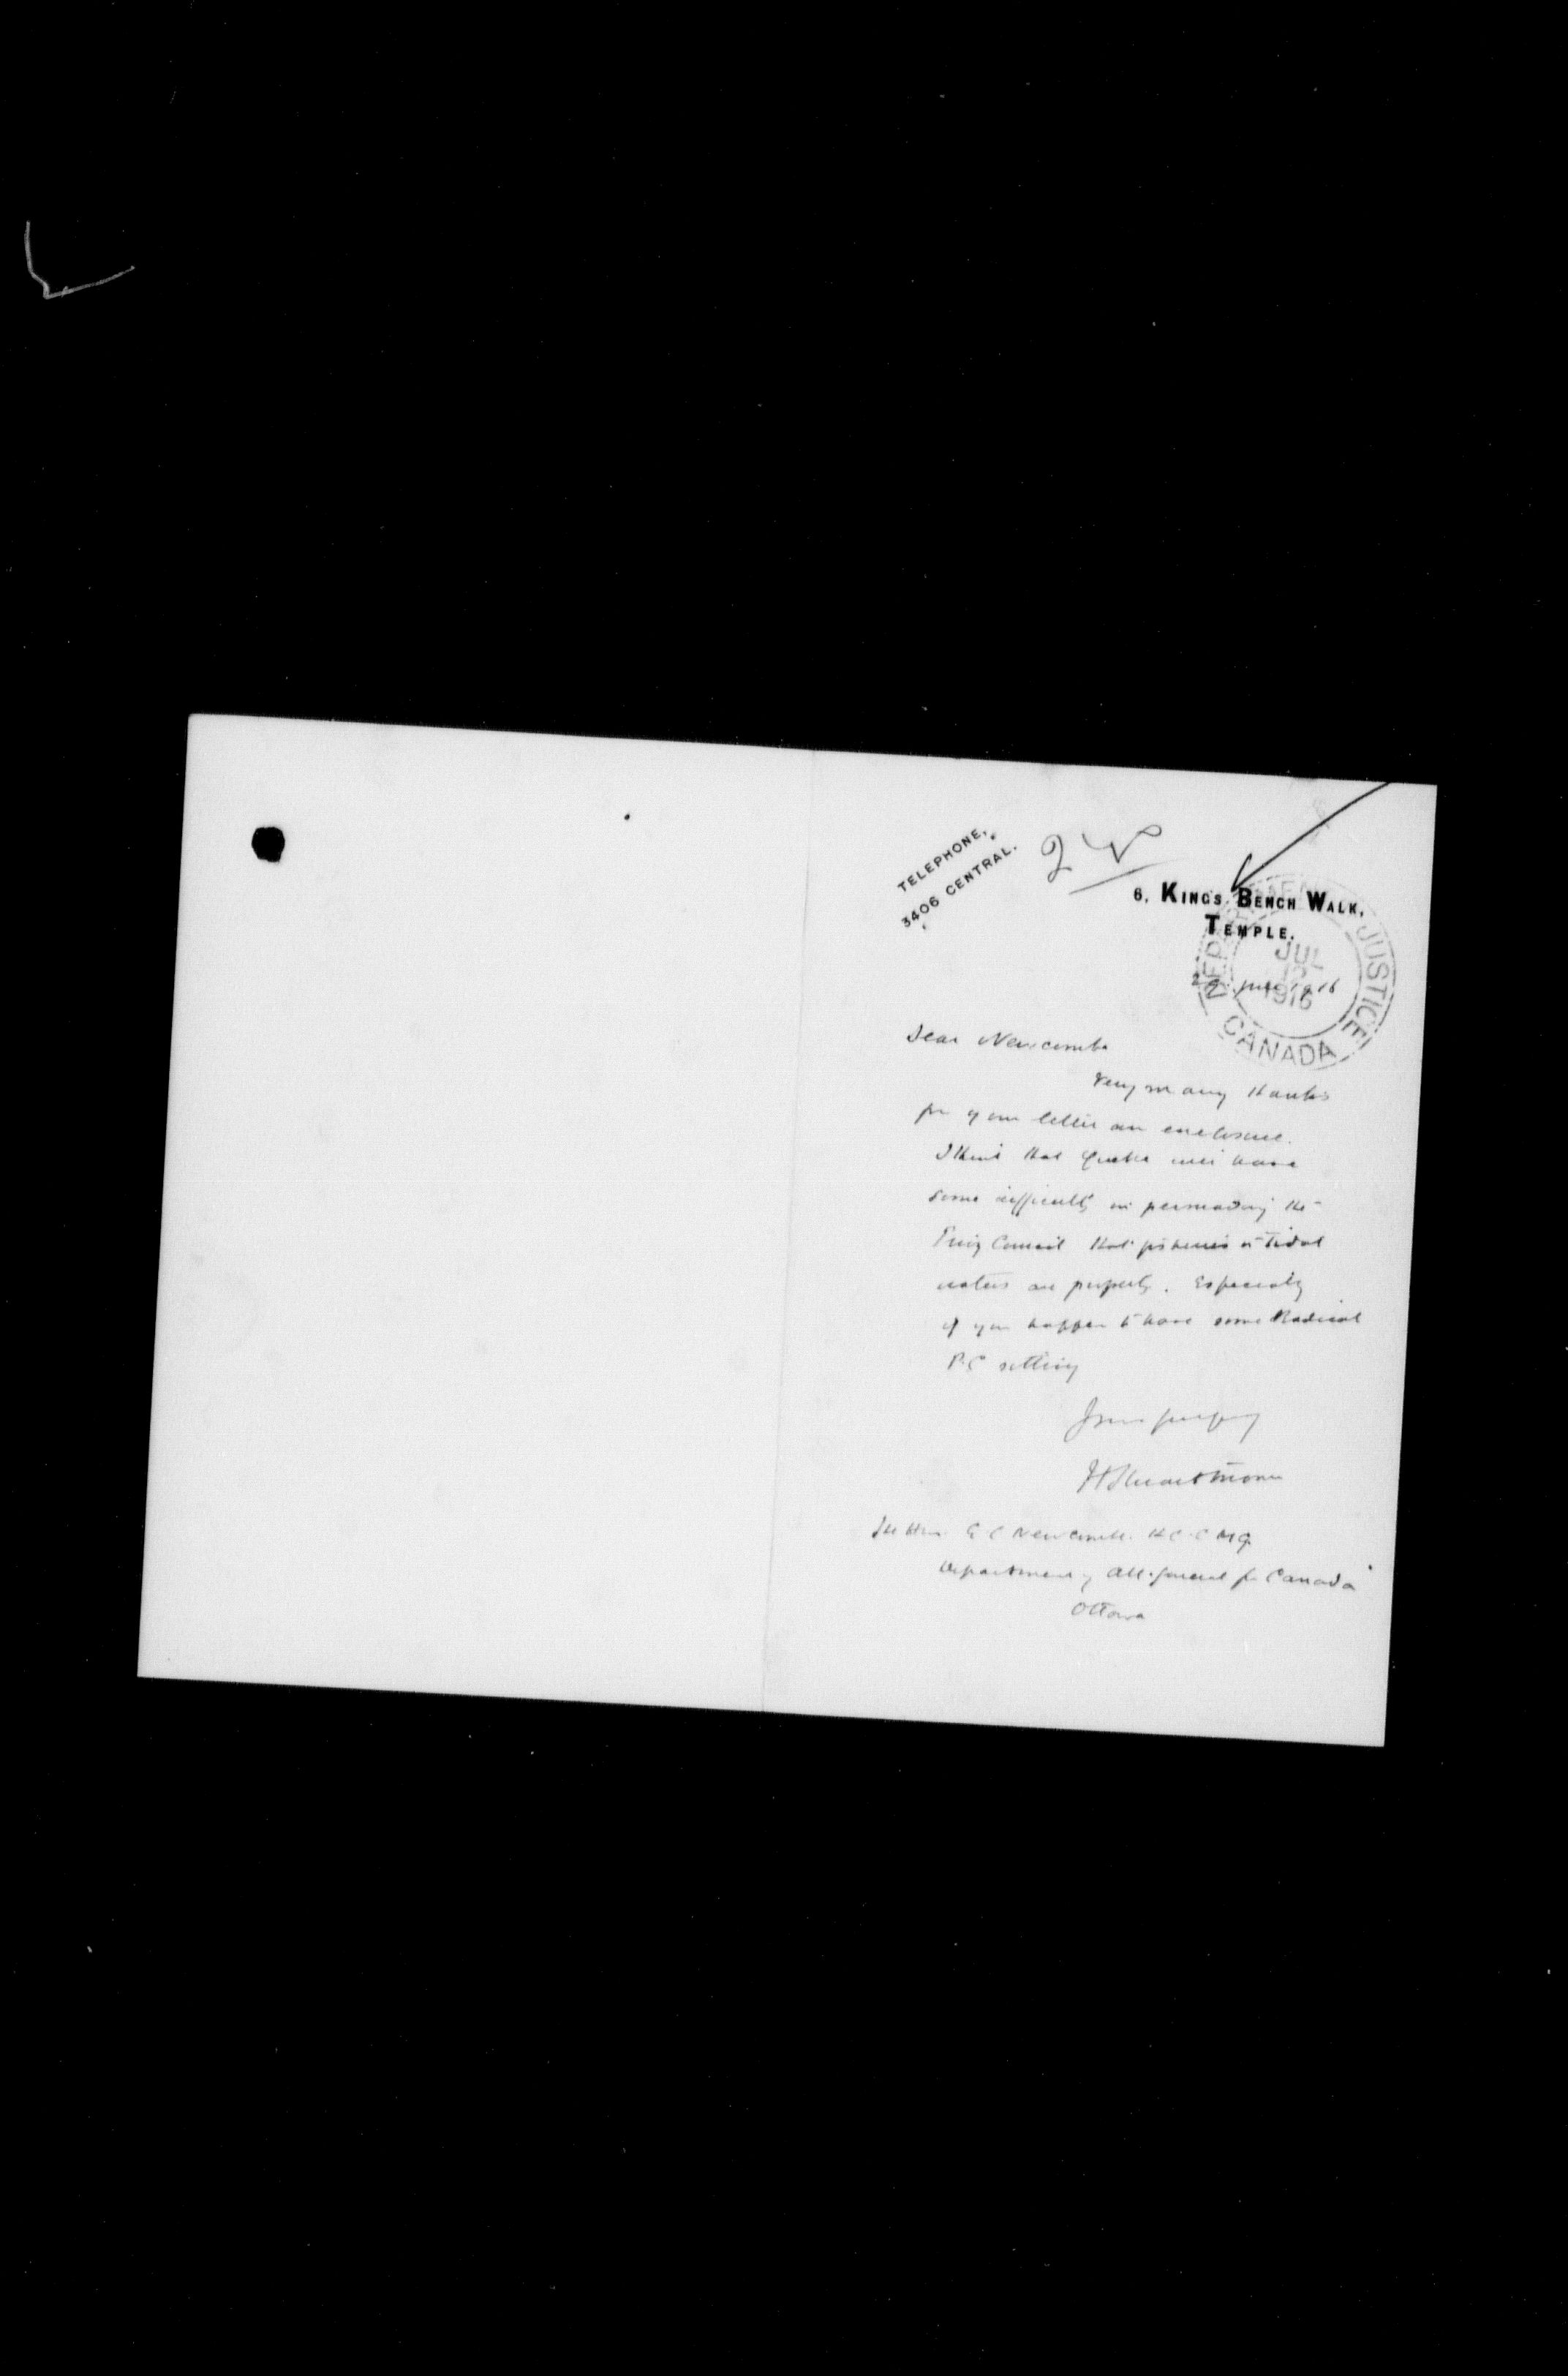 TELEPHONE,
3406 CENTRAL.
6. KINGS BENCH WALK,
TEMPLE.
DEPARTMENT JUSTICE
JUL
1916
CANADA
29 June 1916
Dear Newcombe
Very many thanks
for your letter and enclosure.
I think that Quebec will have
some difficulty in persuading the
Privy Council that fisheries in tidal
waters are property. Especially
if you happen to have some Radical
P.C sitting
H Stuart Moore
The Hon. E C Newcombe. K C. C M G
Department of Att. General for Canada
Ottawa